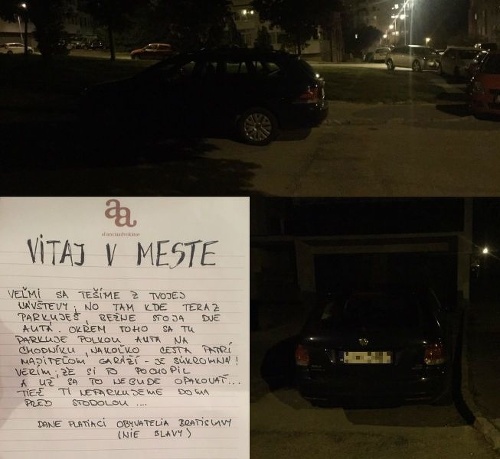 aa
VITAJ V MESTE
VEĽMI SA TEŠÍME Z TVOJEJ
NÁVŠTEVY, NO TAM KDE TERAZ
PARKUJEŠ, BEŽNE STOJA DVE
AUTÁ. OKREM TOHO SA TU
PARKUJE POLKOU AUTA NA
CHODNÍKU, NAKOĽKO CESTA PATRÍ
MAJITEĽOM GARÁŽÍ - JE SÚKROMNÁ!
VERÍM, ŽE SI TO POCHOPIL
A UŽ SA TO NEBUDE OPAKOVAŤ...
TIEŽ TI NEPARKUJEME DOMA
PRED STODOLOU ....
DANE PLATIACI OBYVATELIA BRATISLAVY
(NIE BLAVY)